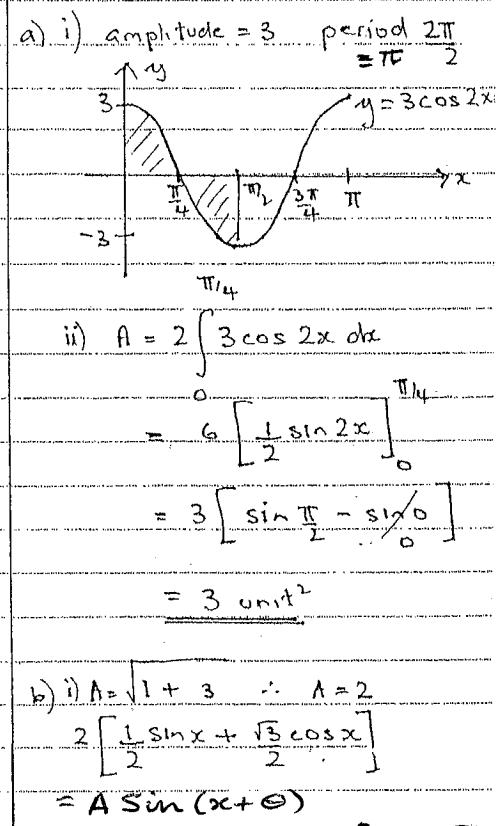 a) i) amplitude = 3 period 2π/2
= π
y
3 y = 3cos 2x
π/4 π/2 3π/4 π x
-3
ii) A = 2 ∫₀^(π/4) 3 cos 2x dx
= 6 [ 1/2 sin 2x ]₀^(π/4)
= 3 [ sin π/2 - sin 0 ]
0
= 3 unit²
b) i) A = √(1 + 3) ∴ A = 2
2 [ 1/2 sin x + √3/2 cos x ]
= A Sin (x + θ)